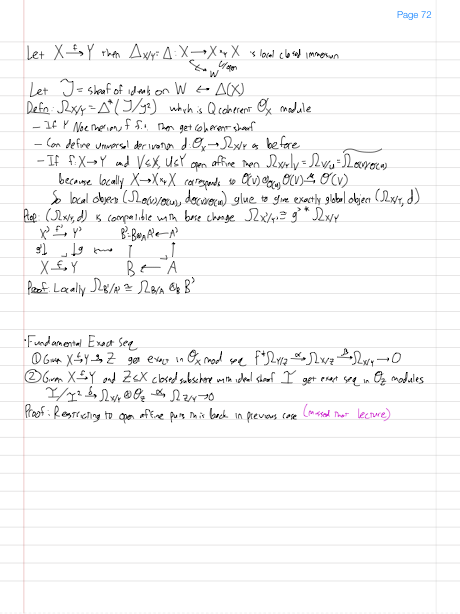 Page 72
Let X →f Y then Δ_{X/Y} = Δ : X → X ×_Y X is local closed immersion
W
Let J = sheaf of ideals on W ↔ Δ(X)
Defn: Ω_{X/Y} = Δ*(J/J²) which is Qcoherent O_X module
- If Y Noetherian, f f.t. then get coherent sheaf
- Can define universal derivation d: O_X → Ω_{X/Y} as before
- If f: X → Y and V ⊆ X, U ⊆ Y open affine then Ω_{X/Y}|_V = Ω_{V/U} = Ω_{O(V)/O(U)}
because locally X → X ×_Y X corresponds to O(V) ⊗_{O(U)} O(V) → O(V)
So local objects (Ω_{O(V)/O(U)}, d_{O(V)/O(U)}) glue to give exactly global object (Ω_{X/Y}, d)
Prop: (Ω_{X/Y}, d) is compatible with base change Ω_{X'/Y'} ≅ g'* Ω_{X/Y}
X' →f' Y' B' = B ⊗_A A' ← A'
g' ↓ ↓ g ↑ ↑
X →f Y B ← A
Proof: Locally Ω_{B'/A'} ≅ Ω_{B/A} ⊗_B B'
· Fundamental Exact Seq
① Given X →f Y →g Z get exact in O_X mod seq f*Ω_{Y/Z} →α Ω_{X/Z} →β Ω_{X/Y} → 0
② Given X →f Y and Z ⊆ X closed subscheme with ideal sheaf I get exact seq in O_Z modules
I/I² →δ Ω_{X/Y} ⊗ O_Z →α Ω_{Z/Y} → 0
Proof: Restricting to open affine puts this back in previous case (missed that lecture)